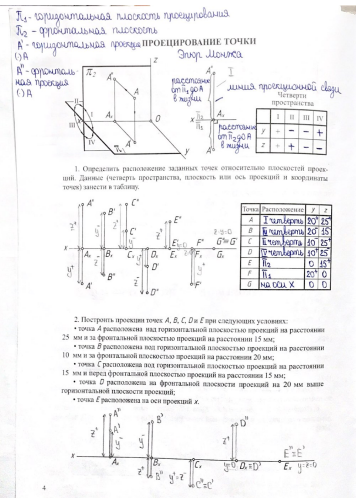 П₁ - горизонтальная плоскость проецирования
П₂ - фронтальная плоскость
А' - горизонтальная проекция
()А
ПРОЕЦИРОВАНИЕ ТОЧКИ
Эпюр Монжа
А'' - фронталь-
ная проекция
()А
линия проекционной связи
расстояние
от П₂ до А
в жизни
Четверти
пространства
I II III IV
y + − − +
z + + − −
1. Определить расположение заданных точек относительно плоскостей проек-
ций. Данные (четверть пространства, плоскость или ось проекций и координаты
точек) занести в таблицу.
Точка Расположение y z
A I четверть 20 25
B
C II четверть 10 25
D IV четверть 10 25
E П₂ 0 15
F П₁ 20 0
G на оси x 0 0
2. Построить проекции точек A, B, C, D и E при следующих условиях:
• точка A расположена над горизонтальной плоскостью проекций на расстоянии
25 мм и за фронтальной плоскостью проекций на расстоянии 15 мм;
• точка B расположена под горизонтальной плоскостью проекций на расстоянии
10 мм и за фронтальной плоскостью проекций на расстоянии 20 мм;
• точка C расположена под горизонтальной плоскостью проекций на расстоянии
15 мм и перед фронтальной плоскостью проекций на расстоянии 15 мм;
• точка D расположена на фронтальной плоскости проекций на 20 мм выше
горизонтальной плоскости проекций;
• точка E расположена на оси проекций x.
A''
B'
D''
E'' ≡ E'
x Aₓ Bₓ Cₓ y=0 Dₓ≡D' Eₓ y=z=0
B''
C''≡C'
4